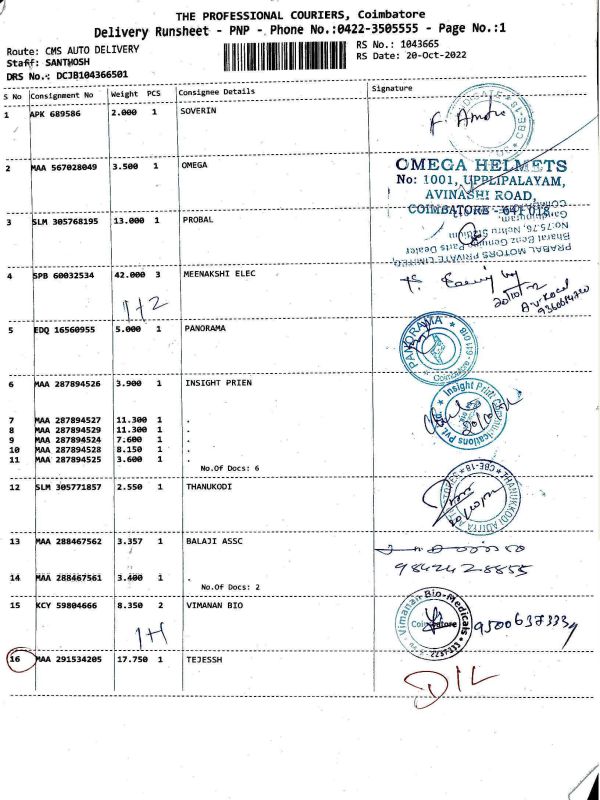 THE PROFESSIONAL COURIERS, Coimbatore
Delivery Runsheet - PNP - Phone No.:0422-3505555 - Page No.:1
Route: CMS AUTO DELIVERY
RS No.: 1043665
Staff: SANTHOSH
RS Date: 20-Oct-2022
DRS No.: DCJB104366501
S No Consignment No Weight PCS Consignee Details Signature
1 APK 689586 2.000 1 SOVERIN
2 MAA 567028049 3.500 1 OMEGA
OMEGA HELMETS
No: 1001, UPPLIPALAYAM,
AVINASHI ROAD,
COIMBATORE - 641 018
3 SLM 305768195 13.000 1 PROBAL
Gandhipuram,
No:75,76, Nehru Stadium
Bharat Benz Genuine Parts Dealer
PRABAL MOTORS PRIVATE LIMITED,
4 SPB 60032534 42.000 3 MEENAKSHI ELEC
1+2
20/10/22
5 EDQ 16560955 5.000 1 PANORAMA
PANORAMA
Coimbatore
6 MAA 287894526 3.900 1 INSIGHT PRIEN
Insight Print Communications Pvt.
7 MAA 287894527 11.300 1 .
8 MAA 287894529 11.300 1 .
9 MAA 287894524 7.600 1 .
10 MAA 287894528 8.150 1 .
11 MAA 287894525 3.600 1 .
No.Of Docs: 6
12 SLM 305771857 2.550 1 THANUKODI
13 MAA 288467562 3.357 1 BALAJI ASSC
9842428855
14 MAA 288467561 3.400 1 .
No.Of Docs: 2
15 KCY 59804666 8.350 2 VIMANAN BIO
1+1
Vimanan Bio-Medicals
Coimbatore
16 MAA 291534205 17.750 1 TEJESSH
DIL